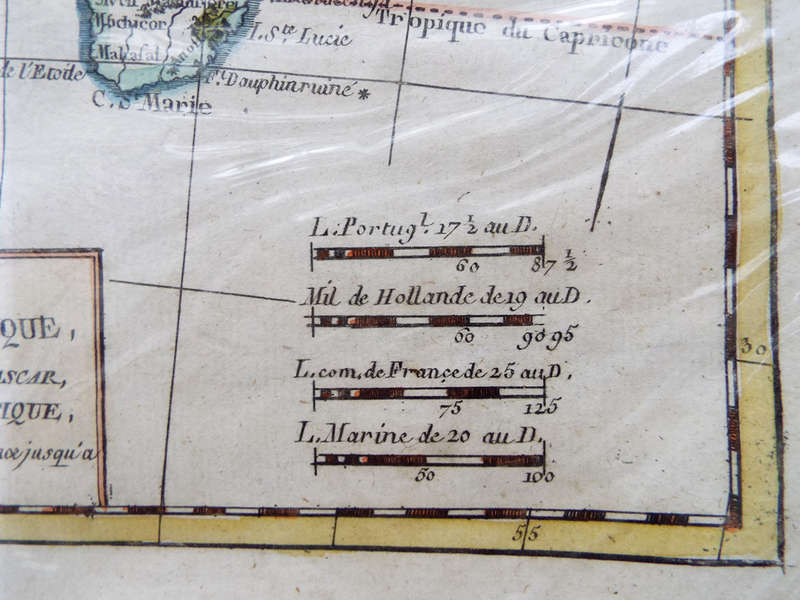 Tropique du Capricorne
Mahafal
I. Ste. Lucie
de l'Etoile
F. Dauphin ruiné *
C. S. Marie
L. Portugl. 17 1/2 au D.
60 87 1/2
Mil de Hollande de 19 au D.
60 90 95
QUE,
L. com. de France de 25 au D.
30
SCAR,
75 125
TIQUE,
L. Marine de 20 au D.
jusqu'a
50 100
55